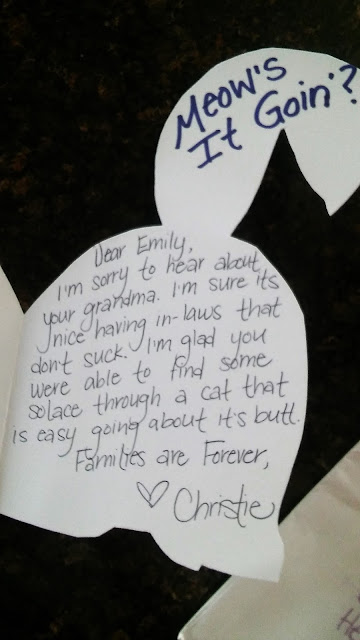 Meow's
It Goin'?
Dear Emily,
I'm sorry to hear about
your grandma. I'm sure its
nice having in-laws that
don't suck. I'm glad you
were able to find some
solace through a cat that
is easy going about it's butt.
Families are Forever,
♡ Christie